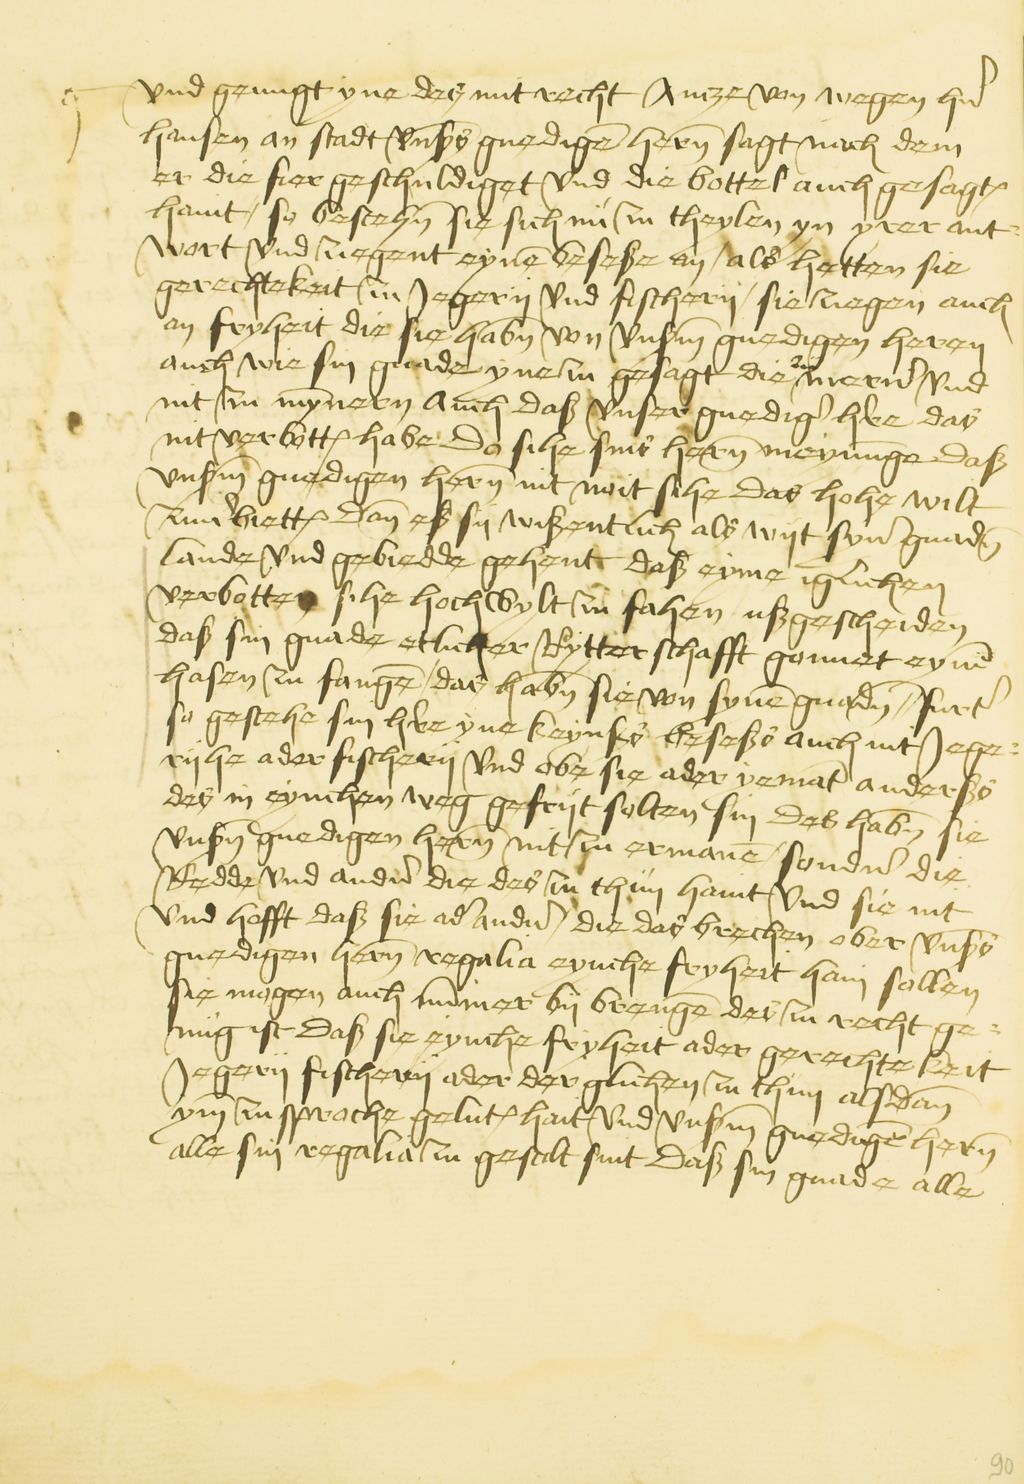 vnd genugt yne des mit recht Antze von wegen hern̄
hansen an stadt vnsers gnedigē hern̄ sagt nach dem
er die fier geschuldiget vnd die bottel auch gesagt
haint / so besteen̄ sie sich nu zu theylen yn yrer ant=
wort vnd ziegent eynē beseße an / als hetten sie
gerechtekeit zu Jegerij vnd fischerij / sie ziegen auch
an fryheit die sie habn̄ von vnserm̄ gnedigen heren
auch wie sin gnade yne zu gesagt die zu meren vnd
nit zu mynnern Auch daß vnser gnediger here das
nit verbotten habe Da sihe sins hern̄ meynunge daß
vnserm̄ gnedigen hern̄ nit noit sihe das hohe wilt
zuuerbietten Dan̄ eß sij wißentlich als wijt syner gnadn̄
lande vnd gebiedde gehent daß eyme iglichen
verbotten sihe hoch wylt zu fahen ußgescheiden
daß sin gnade etlicher Rytterschafft gonnet eynen
hasen zu fangē / das habn̄ sie von synē gnadn̄ / furter
so gestehe sin here yne keynß beseßs auch nit Jege=
rijhe ader fischerij vnd obe sie ader yemāt anderßs
des in eynchen weg gefrijt solten sin des habn̄ sie
vnsern̄ gnedigen hern̄ nit zu ermanē / sonder die
Redde vnd ander die des zu thun haint vnd sie nit
vnd hofft daß sie ader ander / die das brechen ober vnsers
gnedigen hern̄ regalia eynche fryheit hain sollen
sie mogen auch nummer bij brengē des zu recht ge=
nug ist Daß sie eynche fryheit ader gerechtekeit
Jegerij fischerij ader der glichen zu thun alsdan̄
ym̄ zusproche gelut hait vnd vnserm̄ gnedigē hern̄
alle sin regalia zu gestalt sint Daß sin gnade alle
90